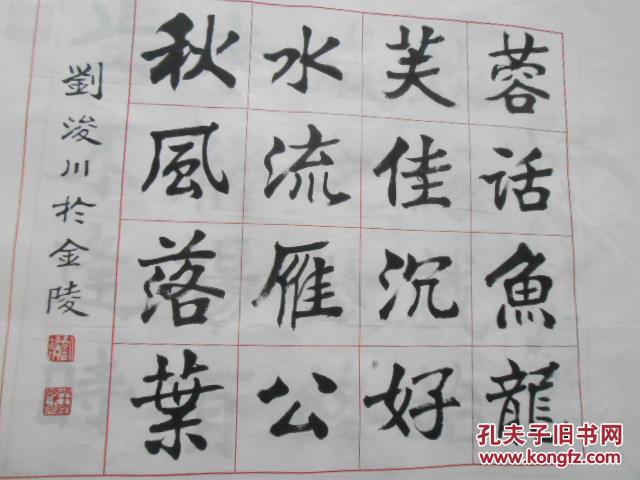 蓉話魚龍
芙佳沉好
水流雁公
秋風落葉
劉浚川於金陵
孔夫子旧书网
www.kongfz.com